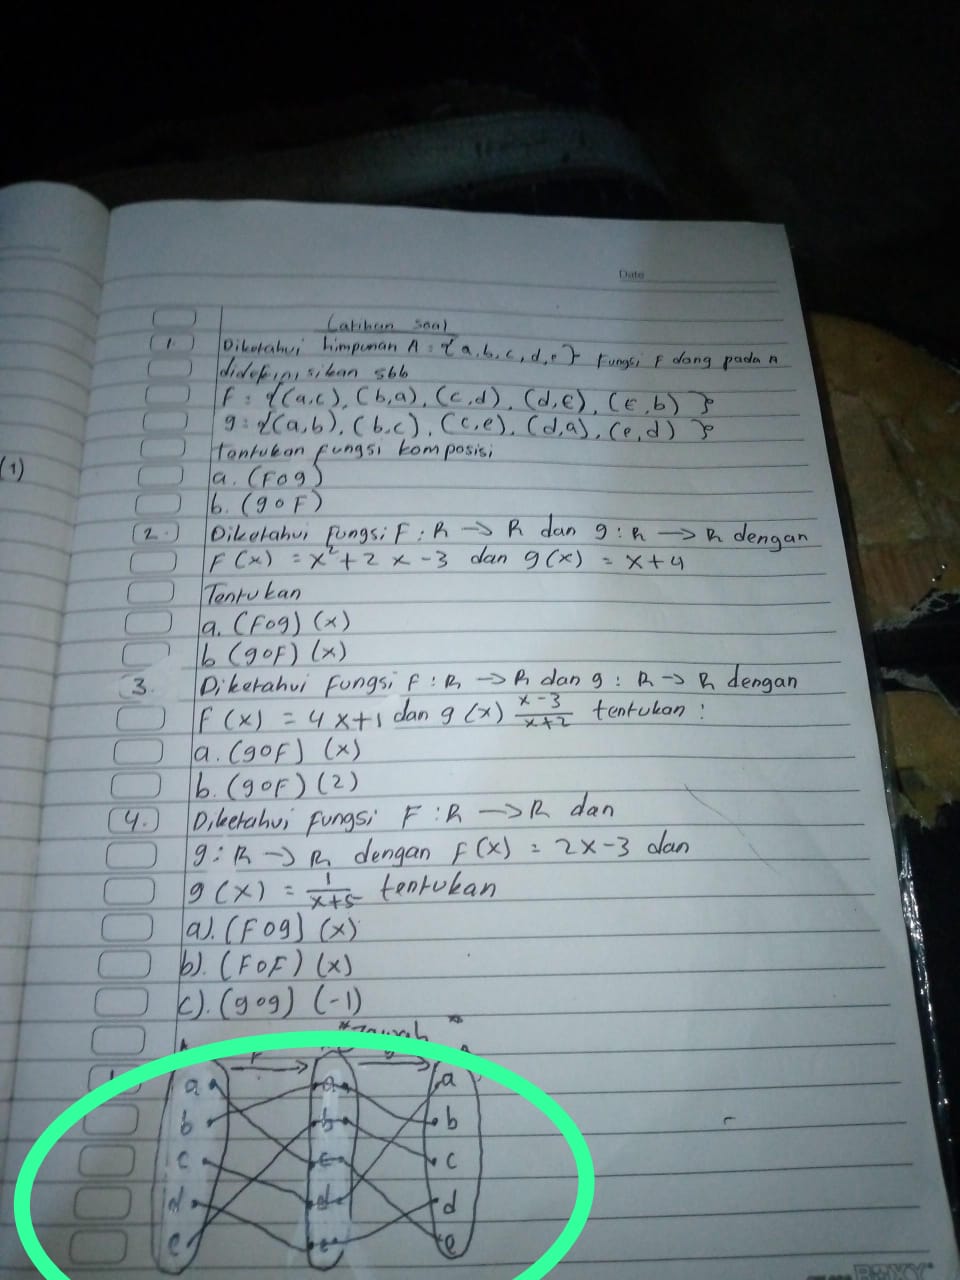 Date
Latihan Soal
1. Diketahui himpunan A = {a,b,c,d,e} fungsi f dang pada A
didefinisikan sbb
F = {(a,c), (b,a), (c,d), (d,e), (e,b)}
g = {(a,b), (b,c), (c,e), (d,a), (e,d)}
Tentukan fungsi komposisi
(1)
a. (Fog)
b. (goF)
2. Diketahui fungsi F : R → R dan g : R → R dengan
F(x) = x²+2x-3 dan g(x) = x+4
Tentukan
a. (Fog) (x)
b (goF) (x)
3. Diketahui fungsi F : R → R dan g : R → R dengan
F(x) = 4x+1 dan g(x) x-3/x+2 tentukan :
a. (goF) (x)
b. (goF) (2)
4. Diketahui fungsi F : R → R dan
g : R → R dengan F(x) = 2x-3 dan
g(x) = 1/x+5 tentukan
a). (Fog) (x)
b). (FoF) (x)
c). (gog) (-1)
a a a
b b b
c c c
d d d
e e e